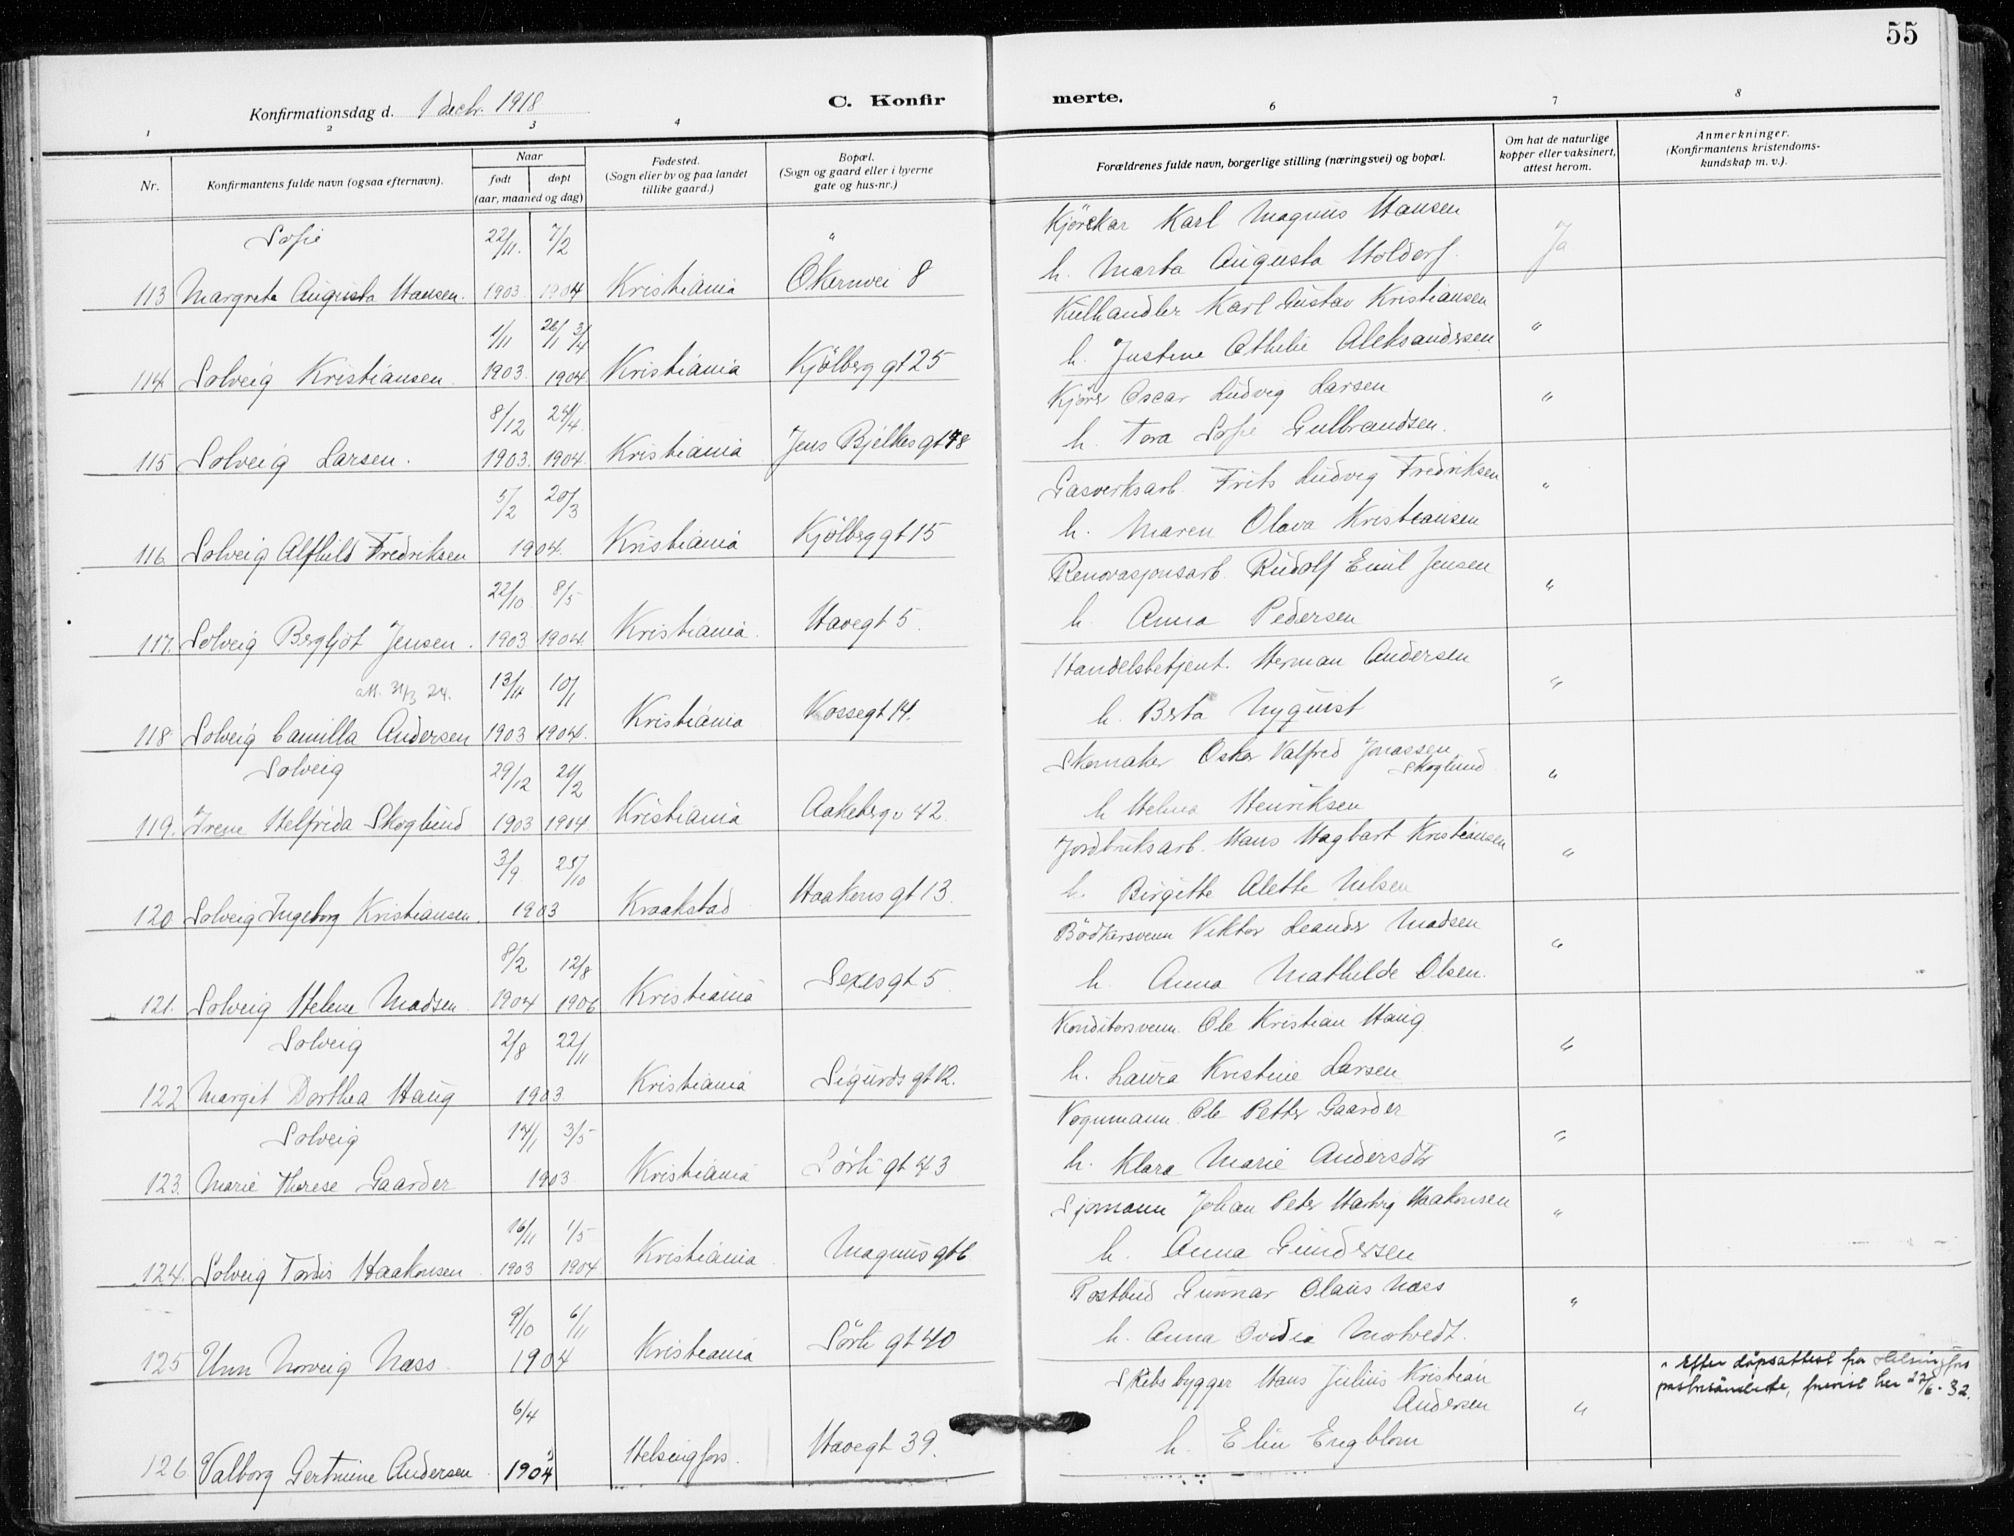 55
Konfirmationsdag d. 1 decbr. 1918
C. Konfirmerte.
1 2 3 4 6 7 8
Nr.
Konfirmantens fulde navn (ogsaa efternavn).
Naar
født
døpt
(aar, maaned og dag)
Fødested.
(Sogn eller by og paa landet
tillike gaard.)
Bopæl.
(Sogn og gaard eller i byerne
gate og hus-nr.)
Forældrenes fulde navn, borgerlige stilling (næringsvei) og bopæl.
Om hat de naturlige
kopper eller vaksinert,
attest herom.
Anmerkninger.
(Konfirmantens kristendoms-
kundskap m. v.).
Sofie 22/11. 7/2 " Kjörekar Karl Magnus Hansen Ja
113 Margrete Augusta Hansen. 1903. 1904 Kristiania Økernvei 8 h. Marta Augusta Holdorf.
1/11 26/1 3/4 Kulhandler Karl Gustav Kristiansen "
114 Solveig Kristiansen. 1903. 1904 Kristiania Kjölberg gt 25 h. Justine Othilie Aleksandersen
8/12 24/4 Kjörer Oscar Ludvig Larsen "
115 Solveig Larsen. 1903. 1904. Kristiania Jens Bjelkes gt 78 h. Tora Sofie Gulbrandsen.
5/2 20/3 Gasverksarb. Frits Ludvig Fredriksen "
116. Solveig Alfhild Fredriksen 1904. Kristiania Kjölberg gt 15 h. Maren Olava Kristiansen
22/10 8/5 Renovasjonsarb. Rudolf Emil Jensen "
117. Solveig Bergljot Jensen. 1903 1904. Kristiania. Havegt 5. h. Anna Pedersen
att. 31/3 24. 13/11 10/1 Handelsbetjent. Herman Andersen "
118 Solveig Camilla Andersen 1903 1904. Kristiania Kossegt 14. h. Berta Nyquist
Solveig 29/12 21/2 Skomaker Oskar Valfred Jonassen "
Skoglund
119. Irene Helfrida Skoglund 1903 1904 Kristiania Aakebergv 42. h Helma Henriksen
3/9 25/10 Jordbruksarb. Hans Hagbart Kristiansen "
120 Solveig Ingeborg Kristiansen. 1903 Kraakstad Haakons gt 13. h. Birgitte Alette Nilsen
8/2 12/8 Bödkersvenn Viktor Leander Madsen "
121. Solveig Helene Madsen. 1904 1906 Kristiania Sexes gt 5 h. Anna Mathilde Olsen.
Solveig 2/8 22/11 Konditorsvenn. Ole Kristian Haug "
122 Margit Dorthea Haug 1903 Kristiania Sigurds gt 12. h. Laura Kristine Larsen
Solveig 14/1 3/5 Vognmann. Ole Petter Gaarder "
123. Marie Therese Gaarder 1903. Kristiania Sörli gt 43 h. Klara Marie Andersdtr
16/11 1/5 Sjømann Johan Peter Hartvig Haakonsen "
124. Solveig Tordis Haakonsen 1903 1904 Kristiania. Magnus gt 6 h. Anna Gundersen
9/10 6/11 Postbud Gunnar Olaus Næss "
125 Unn Norveig Næss. 1904 Kristiania Sörli gt 40 h. Anna Ovidia Mortvedt.
6/4 Skibsbygger Hans Julius Kristian " " Efter dåpsattest fra Helsingfors
Andersen her 27/6. 32.
126. Valborg Gertrune Andersen 1904 Helsingfors. Havegt 39. h. Elin Engblom